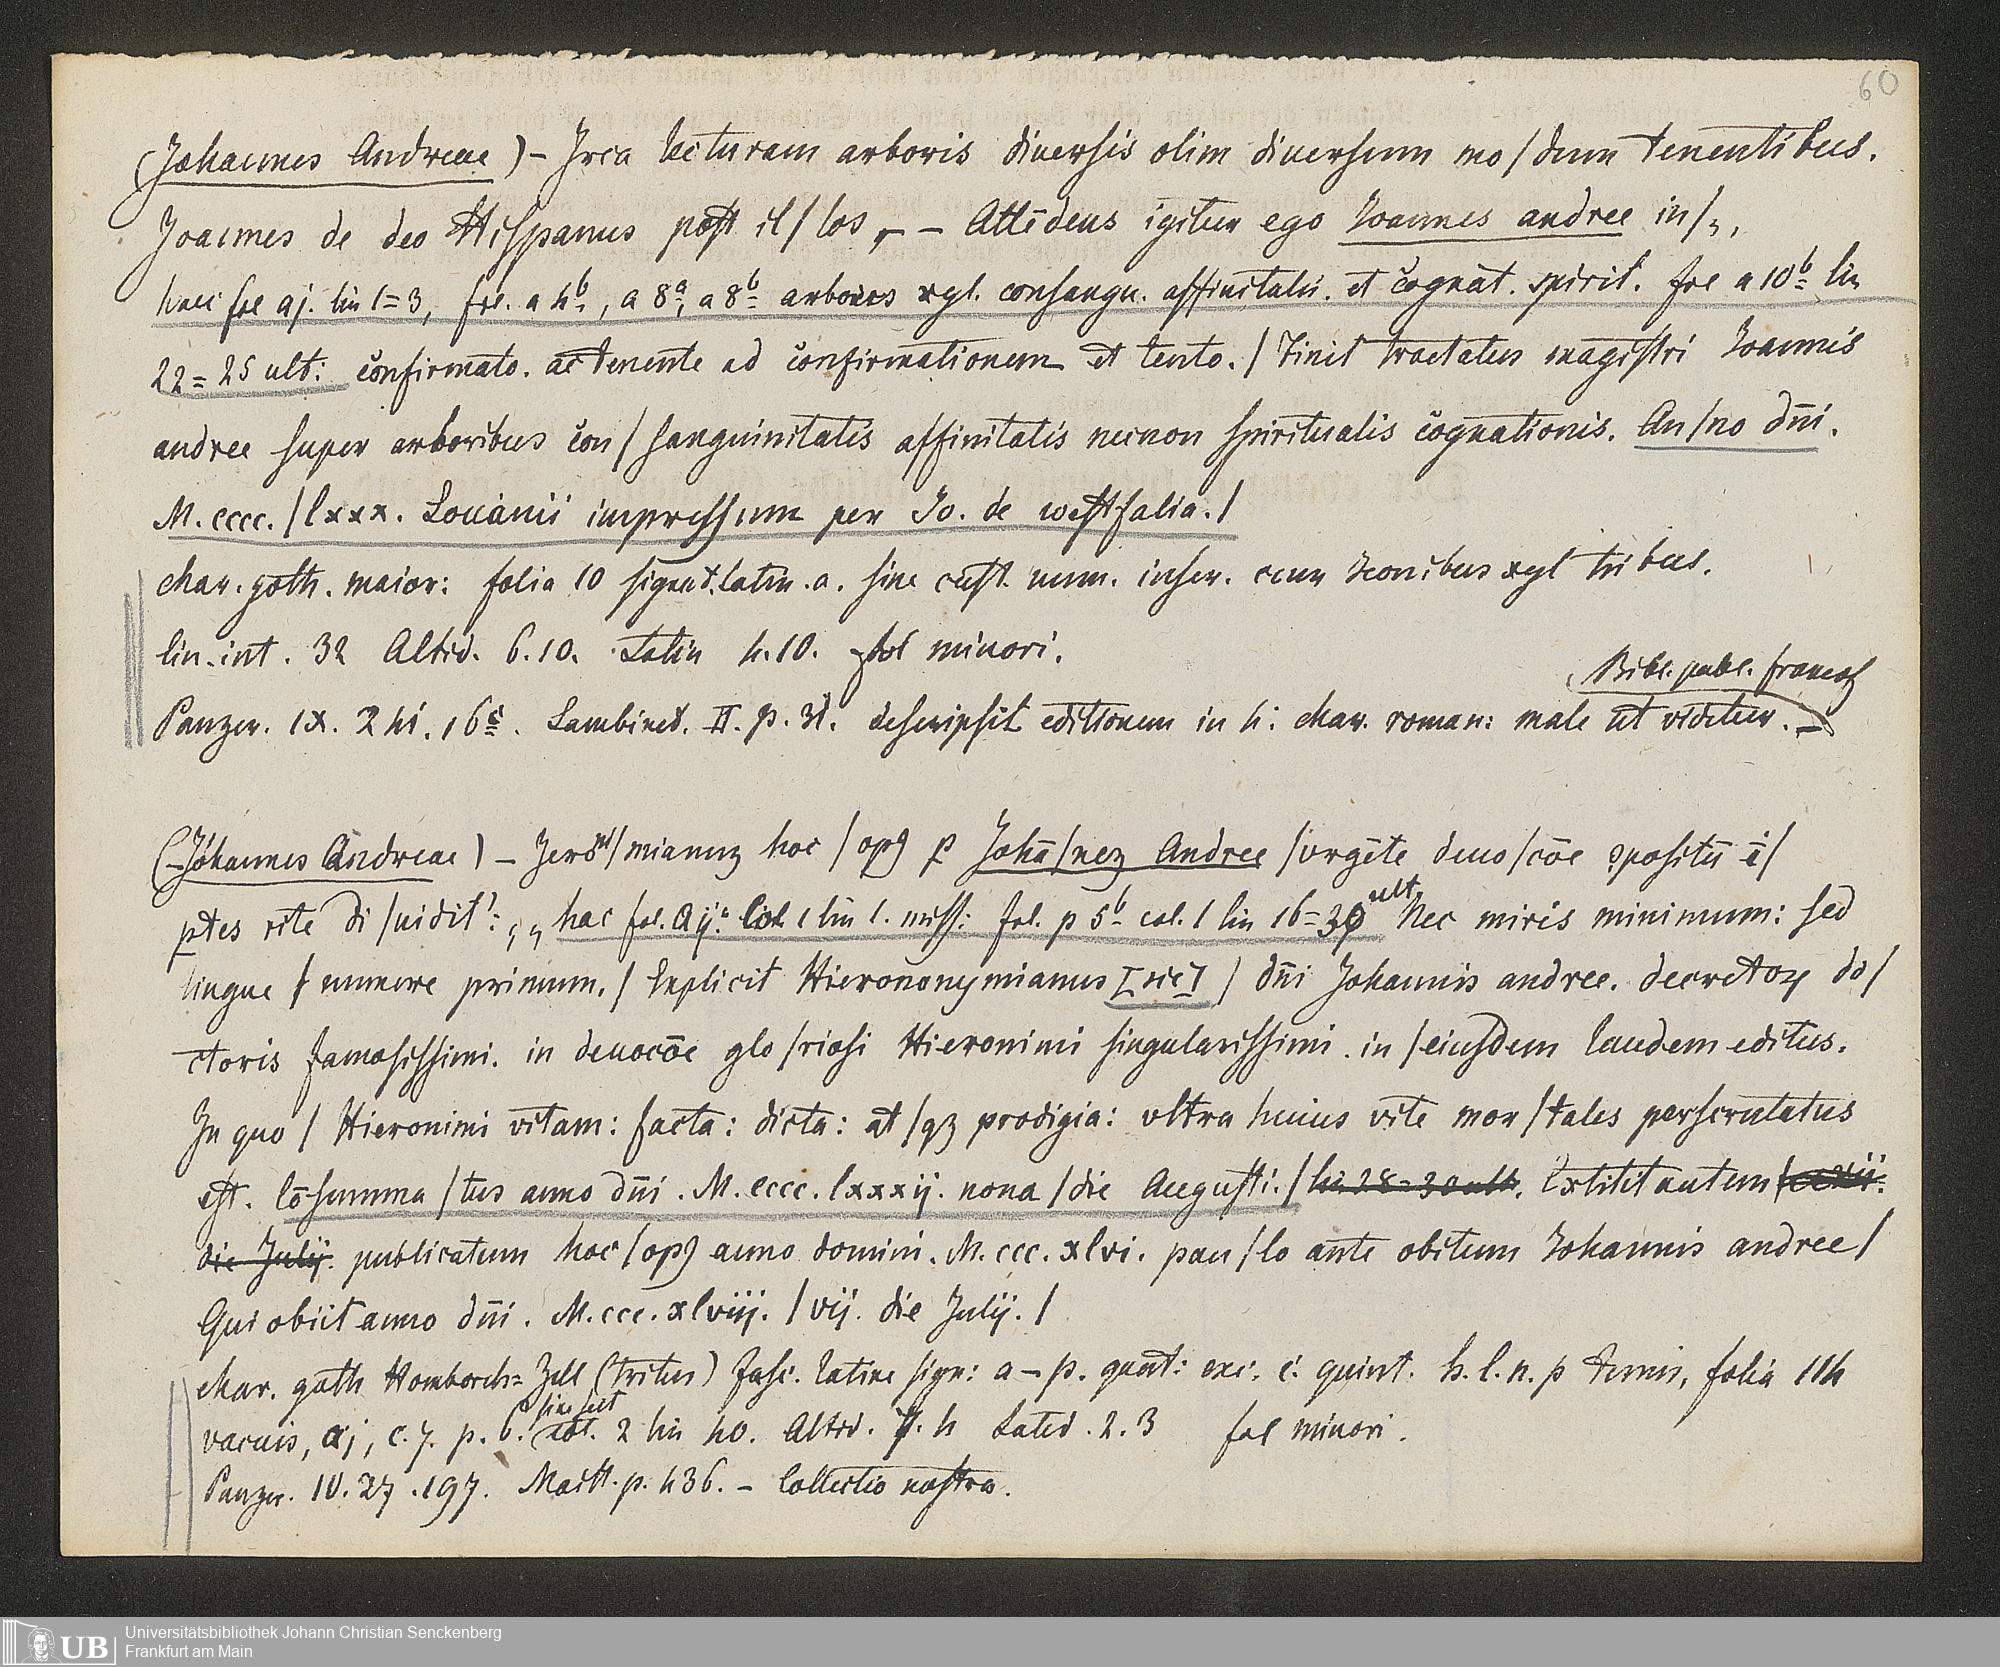 60
(Johannes Andreae) - Irca lecturam arboris diuersis olim diuersum mo/dum tenentibus.
Joannes de deo Hispanus post il/los, - Attēdens igitur ego Ioannes andree in/
haec fol aj. lin 1=3, fol. a 4b, a 8a, a 8b arbores xyl. consangu. affinitatis. et cognat. spirit. fol a 10b lin
22=25 ult: cōfirmato. ac tenente ad cōfirmationem et tento. / Finit tractatus magistri Ioannis
andree super arboribus cōn/sanguinitatis affinitatis necnon spiritualis cōgnationis. An/no dn̄i.
M.cccc./lxxx. Louānii impressum per Io. de westfalia./
char. goth. maior: folia 10 signat. latin. a. sine cust. num. inser. cum Iconibus xyl tribus.
lin. int. 32 Altid. 6.10. Latin 4.10. fol minori.
Bibl. publ. francof
Panzer. IX. 241. 16c. Lambinet. II. p. 31. descripsit editionem in 4: char. roman: male ut videtur. -
(Johannes Andreae) - Jero/mianuz hoc /opꝯ p Johā/nez Andree /vrgēte deuo/cōe ꝯpositū ī/
ptes rite di/uidit: hac fol. a ij. col 1 lin 1. miss: fol. p 5b col. 1 lin 16=39 ult. Nec miris minimum: sed
lingue / munere primum./ Explicit Hierononymianus [sic] / dn̄i Johannis andree. decretoꝝ do/
ctoris famosissimi. in deuocōe glo/riosi Hieronimi singularissimi. in /eiusdem laudem editus.
In quo / Hieronimi vitam: facta: dicta: at/qz prodigia: vltra huius vite mor/tales perscrutatus
est. Cōsumma/tus anno dn̄i. M.cccc.lxxxij. nona /die Augusti./ lin 28=30 ult. Extitit autem
die Julij. publicatum hoc /opꝯ anno domini. M.ccc.xlvi. pau/lo ante obitum Johannis andree/
Qui obiit anno dn̄i. M.ccc.xlviij. / vij. die Julij./
char. goth Homborch=Zell (tritus) fasc. latine sign: a-p. quat: exc. c. quint. h.l.n.p ternis, folia 114
sine sect
vacuis, aj, c.7. p.6. col. 2 lin 40. Altid. 7.4 Latid. 2.3 fol minori.
Panzer. IV. 27. 197. Maitt. p. 436. - Collectio nostra.
UB Universitätsbibliothek Johann Christian Senckenberg
Frankfurt am Main